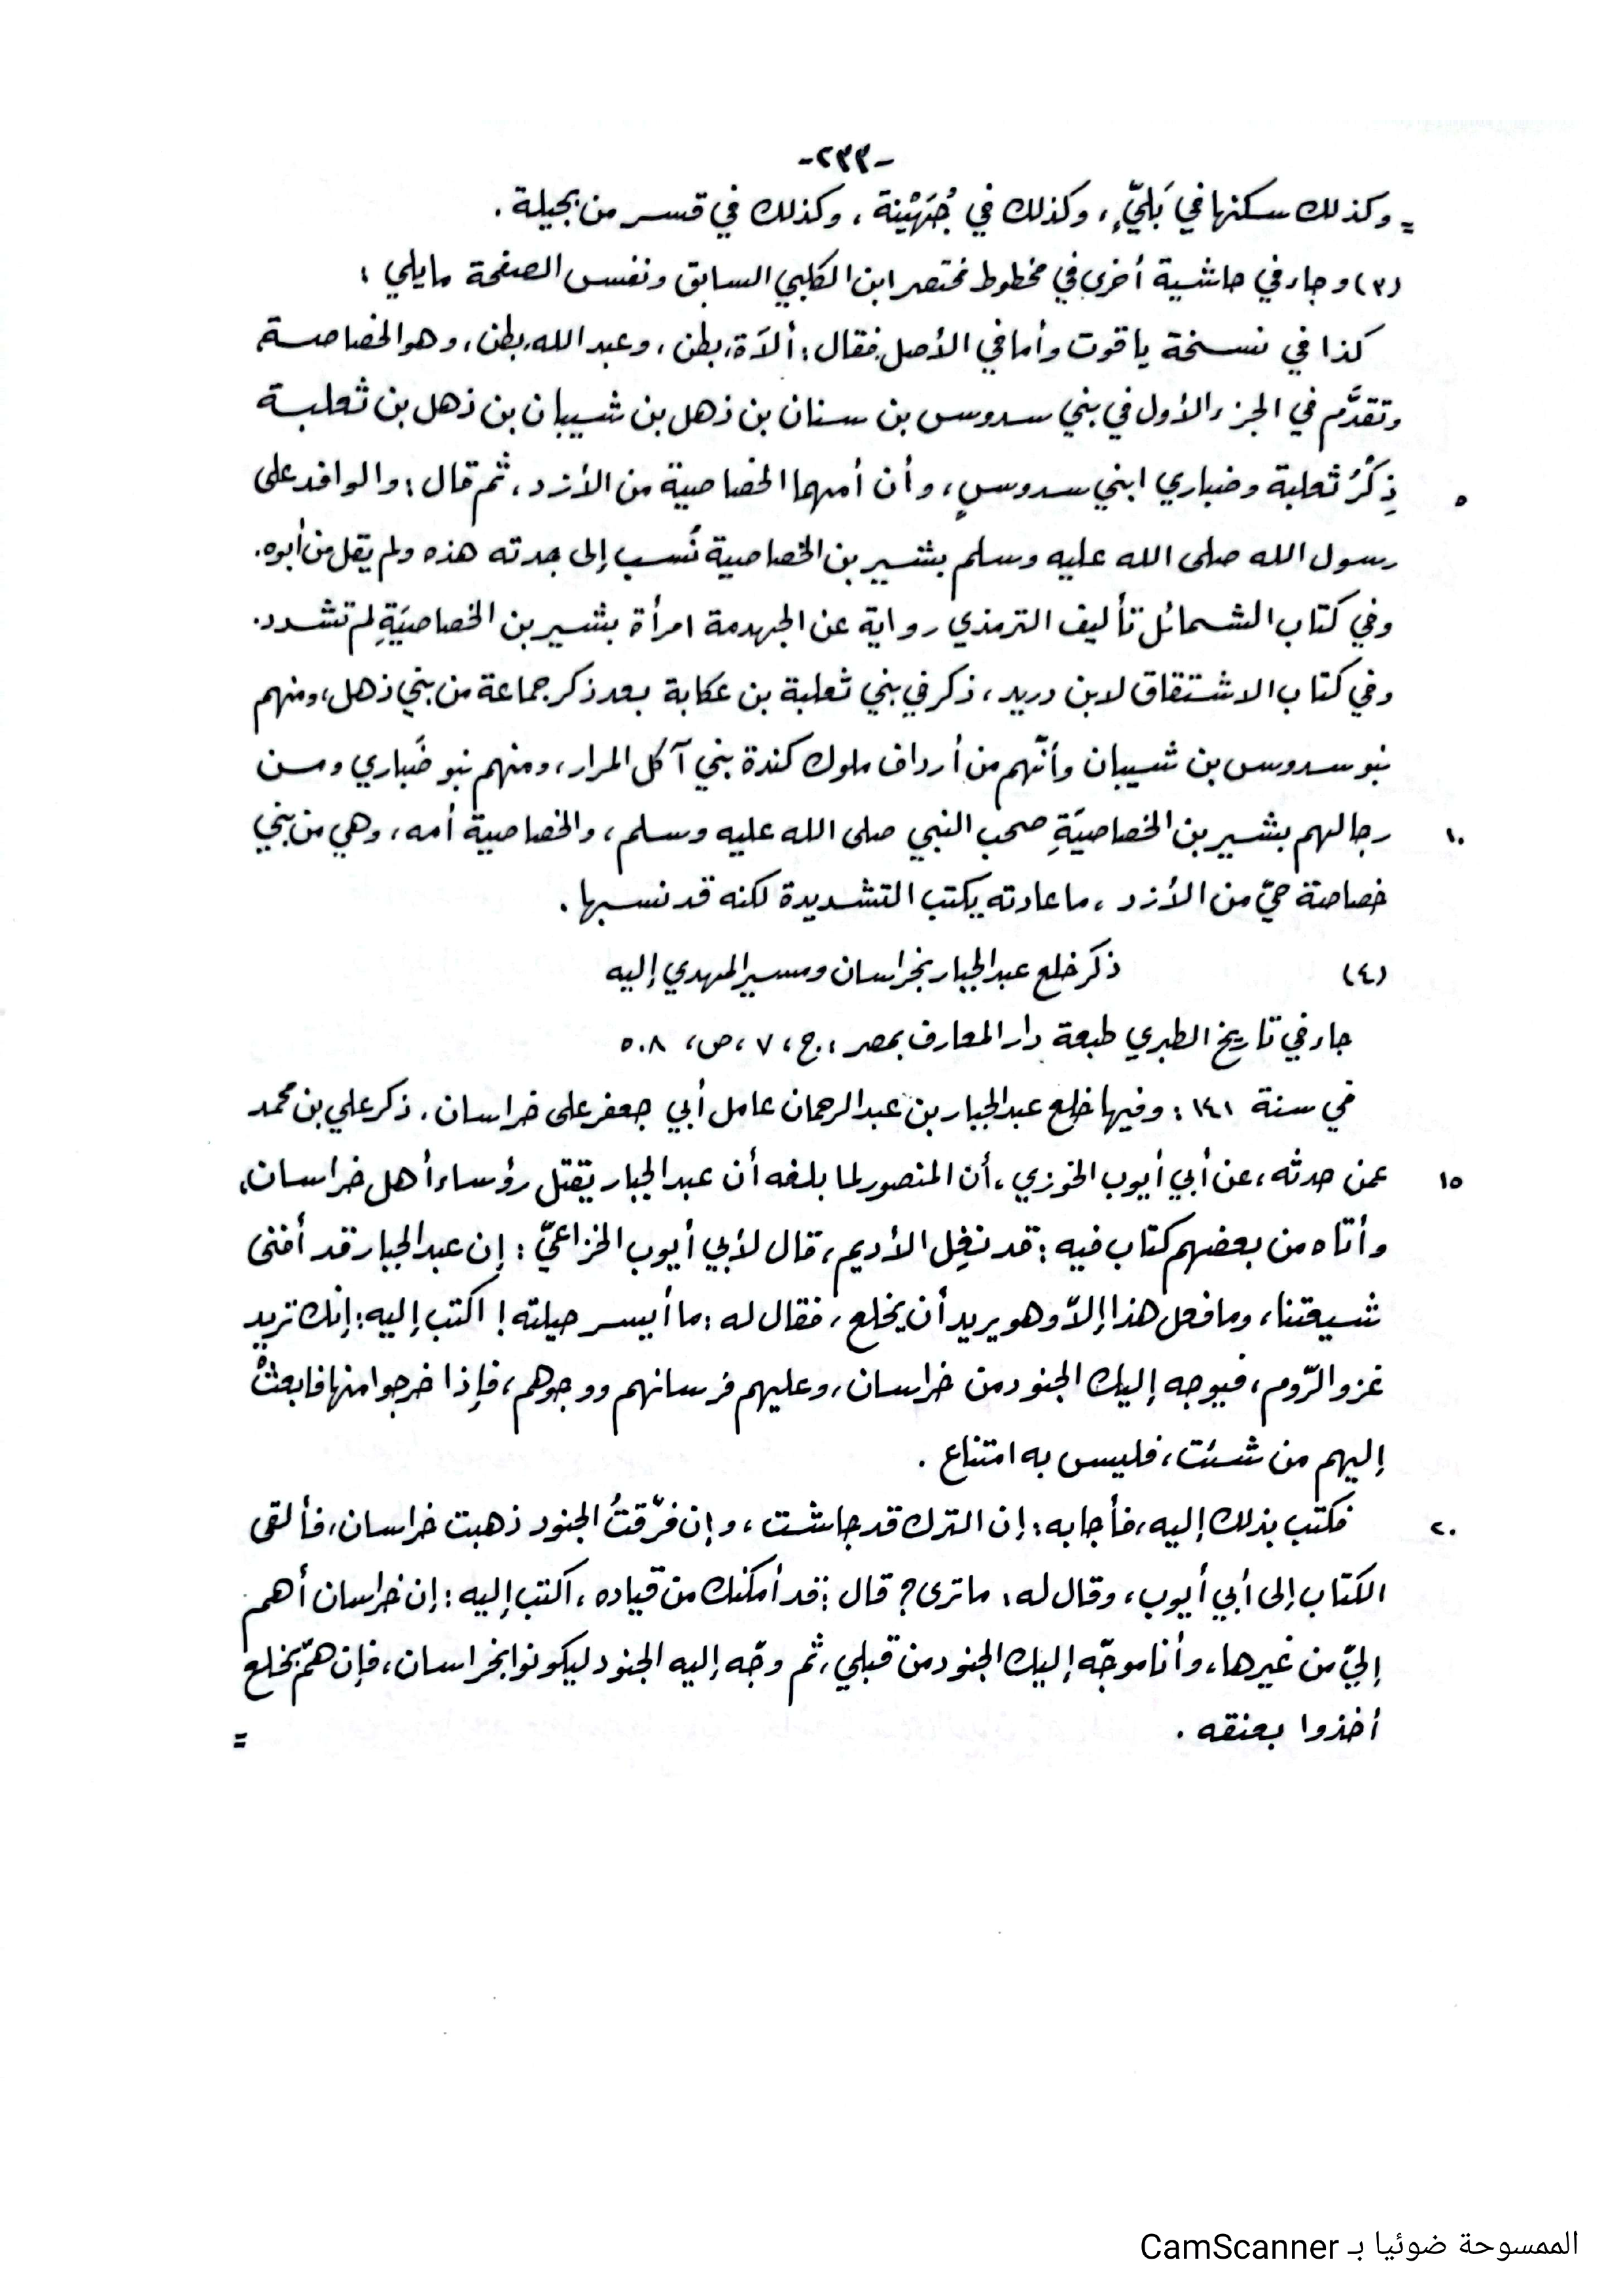 -٢٣٣-
= وكذلك سكنها في بَليٍّ، وكذلك في جُهَيْنة، وكذلك في قسر من بجيلة.
(٣) وجاء في حاشية أخرى في مخطوط مختصر ابن الكلبي السابق ونفس الصفحة مايلي:
كذا في نسخة ياقوت وأما في الأصل فقال: ألاَءة، بطن، وعبد الله، بطن، وهو الخصاصة
وتقدَّم في الجزء الأول في بني سدوس بن سنان بن ذهل بن شيبان بن ذهل بن ثعلبة
٥ ذِكْرُ ثعلبة وضباري ابني سدوسٍ، وأن أمهما الخصاصية من الأزد، ثم قال: والوافد على
رسول الله صلى الله عليه وسلم بشير بن الخصاصية نُسب إلى جدته هذه ولم يقل من أبوه.
وفي كتاب الشمائل تأليف الترمذي رواية عن الجهدمة امرأة بشير بن الخصاصيَةِ لم تشدد.
وفي كتاب الاشتقاق لابن دريد، ذكر في بني ثعلبة بن عكابة بعد ذكر جماعة من بني ذهل، ومنهم
بنو سدوس بن شيبان وأنّهم من أرداف ملوك كندة بني آكل المرار، ومنهم بنو ضَباري ومن
١٠ رجالهم بشير بن الخصاصيَةِ صحب النبي صلى الله عليه وسلم، والخصاصية أمه، وهي من بني
خصاصة حيّ من الأزد، ماعادته يكتب التشديدة لكنه قد نسبها.
(٤) ذكر خلع عبد الجبار بخراسان ومسير المهدي إليه
جاء في تاريخ الطبري طبعة دار المعارف بمصر، ج، ٧، ص، ٥٠٨
في سنة ١٤١: وفيها خلع عبد الجبار بن عبد الرحمان عامل أبي جعفر على خراسان. ذكر علي بن محمد
١٥ عمن حدثه، عن أبي أيوب الخوزي، أن المنصور لما بلغه أن عبد الجبار يقتل رؤساء أهل خراسان،
وأتاه من بعضهم كتاب فيه: قد نغِل الأديم، قال لأبي أيوب الخزاعيّ: إن عبد الجبار قد أفنى
شيعتنا، وما فعل هذا إلاّ وهو يريد أن يخلع، فقال له: ما أيسر حيلته! اكتب إليه: إنك تريد
غزو الرّوم، فيوجه إليك الجنود من خراسان، وعليهم فرسانهم ووجوهم، فإذا خرجوا منها فابعثْ
إليهم من شئت، فليس به امتناع.
٢٠ فكتب بذلك إليه، فأجابه: إن الترك قد جاشت، وإن فرّقتُ الجنود ذهبت خراسان، فألقى
الكتاب إلى أبي أيوب، وقال له: ماترى؟ قال: قد أمكنك من قياده، اكتب إليه: إن خراسان أهم
إليّ من غيرها، وأنا موجّه إليك الجنود من قبلي، ثم وجّه إليه الجنود ليكونوا بخراسان، فإن همّ بخلع
أخذوا بعنقه. =
الممسوحة ضوئيا بـ CamScanner